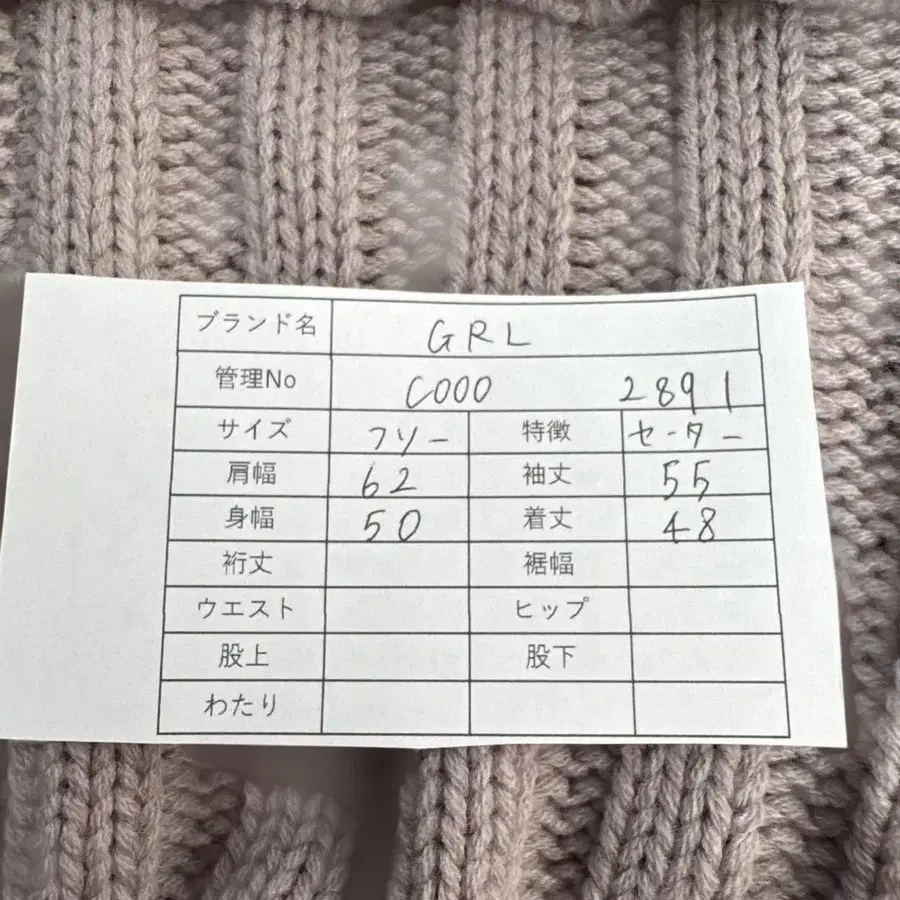 ブランド名 GRL
管理No C000 2891
サイズ フリー 特徴 セーター
肩幅 62 袖丈 55
身幅 50 着丈 48
裄丈 裾幅
ウエスト ヒップ
股上 股下
わたり